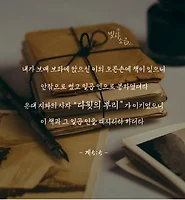 내가 보매 보좌에 앉으신 이의 오른손에 책이 있으니
안팎으로 썼고 일곱 인으로 봉하였더라
유대 지파의 사자 "다윗의 뿌리"가 이기었으니
이 책과 그 일곱 인을 떼시리라 하더라
- 계5:5 -